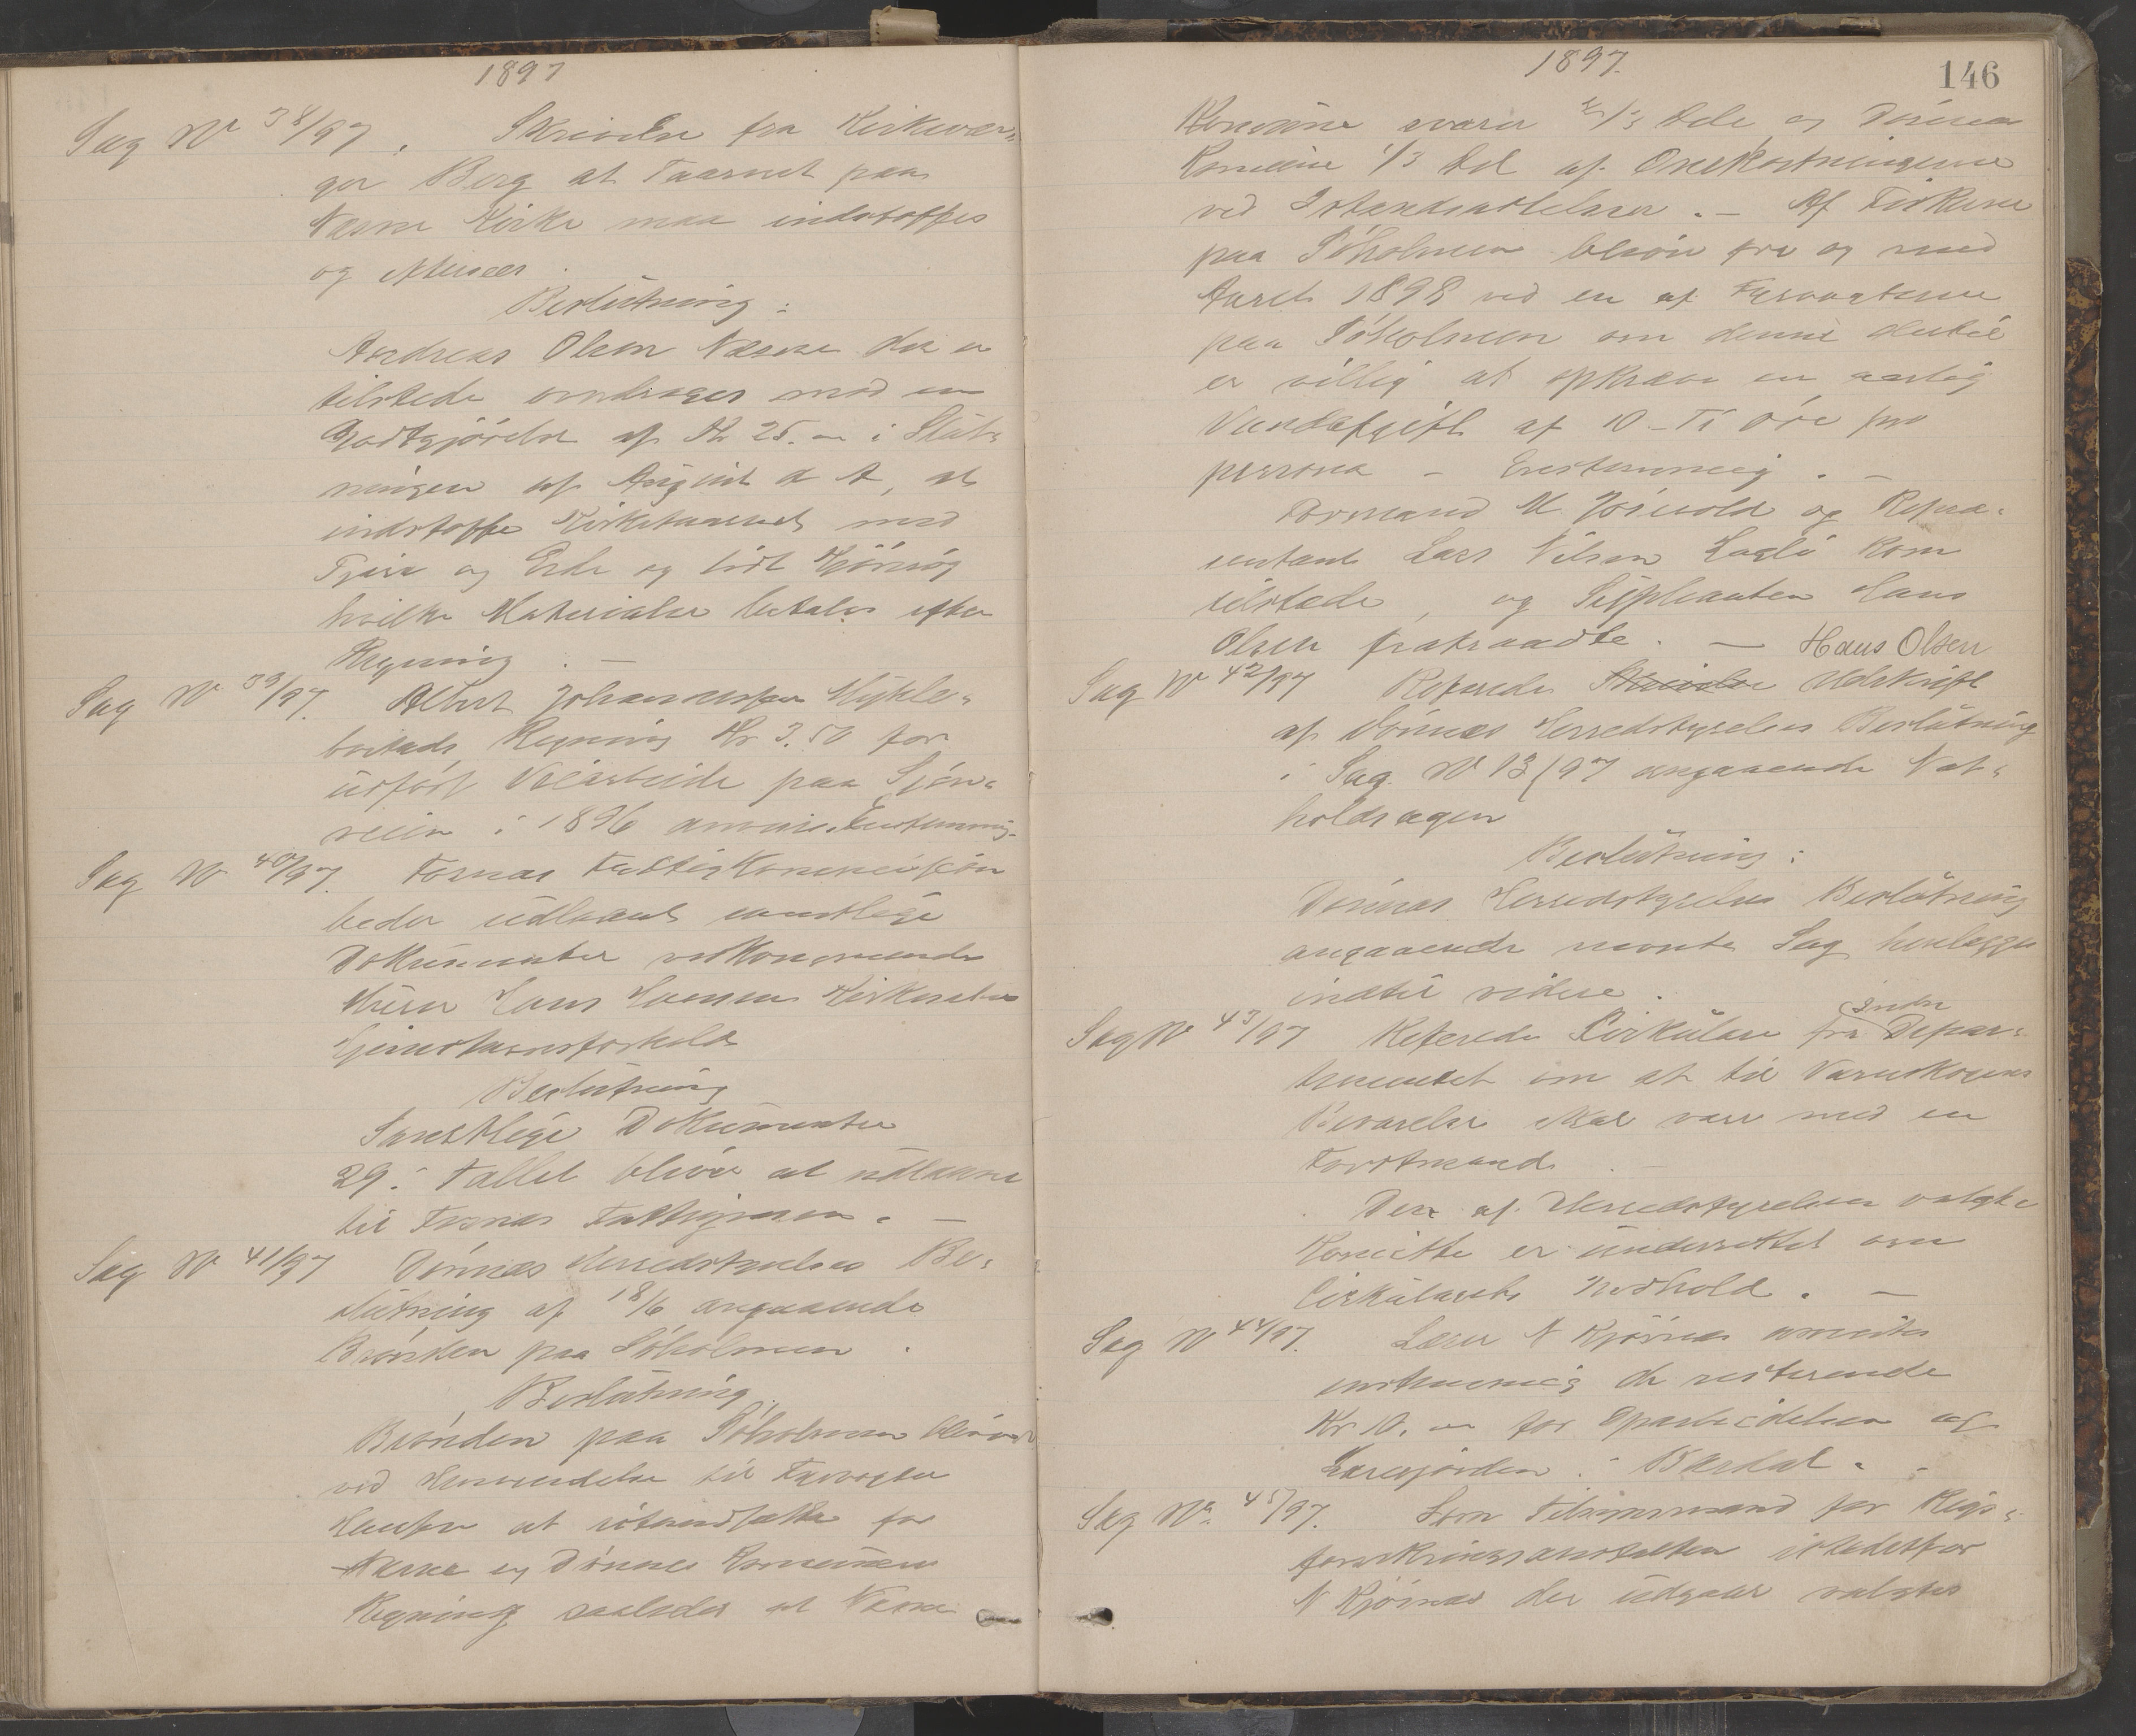 1897
Sag No 38/97. Skrivelse fra Kirkevær-
ger Berg at Taarnet paa
Næsne Kirke maa indstoppes
og
Beslutning:
Andreas Olsen Næsne der er
tilstede omdrages mod en
Godtgjörelse af Kr 25.- i Slut-
ningen af August d A, at
indstoppe Kirketaarnet med
Tjære og Erke og lidt
hvilke Materialer betales efter
Regning. —
Sag No 39/97. Albert Johannessen Mykle-
bostads Regning Kr 3.50 for
udfört Veiarbeide paa Sjön-
veien i 1896 anvises. Enstemmig.
Sag No 40/97. Tosnæs Fattigkommission
beder udlaant samtlige
Dokumenter vedkommende
Hans Hansen
Hjemstavnsforhold
Beslutning
Samtlige Dokumenter
29 i Tallet bliver at udlaane
til Fattigvæsen. —
Sag No 41/97 Dönnæs Herredstyrelses Be-
slutning af 18/6 angaaende
Brönden paa Söholmen.
Beslutning.
Brönden paa Söholmen bliver
ved Henvendelse til Fyrvogter
at istandsætte for
Næsne og Dönnes Kommuners
Regning saaledes at Næsne
1897.
146
Komune svarer 2/3 Dele og Dönnes
Komune 1/3 Del af Omkostningerne
ved Istandsættelsen. — Af Fiskerne
paa Söholmen bliver fra og med
Aaret 1898 ved en af Fyrvogterne
paa Söholmen om denne dertil
er villig at opkræve en aarlig
Vandafgift af 10 - Ti Öre pro
persona - Enstemmig. —
Formand M Zöinold og Repræ-
sentant Lars Nilsen kom
tilstede, og Supleanten Hans
Olsen fratraadte. — Hans Olsen
Sag No 42/97 Referedes Skrivelse Udskrift
af Dönnæs Herredstyrelses Beslutning
i Sag No 13/97 angaaende Not-
holdsagen
Beslutning:
Dönnæs Herredstyrelses Beslutning
angaaende nævnte Sag henlægges
indtil videre.
Sag No 43/97 Referedes Cirkulære fra Indre Depar-
tementet om at til Værnskovens
Bevarelse skal være med en
Forstmand. —
Den af Herredstyrelsen valgte
Komitte er underrettet om
Cirkulærets Indhold. —
Sag No 44/97. Lærer N Kjönnæs anvistes
enstemmig de resterende
Kr 10.- for Oparbeidelsen af
Lærerjorden i Bardal. -
Sag No 45/97. Som Tilsynsmand for Rigs-
forsikringsanstalten istedetfor
N Kjönnæs der udgaar valgtes